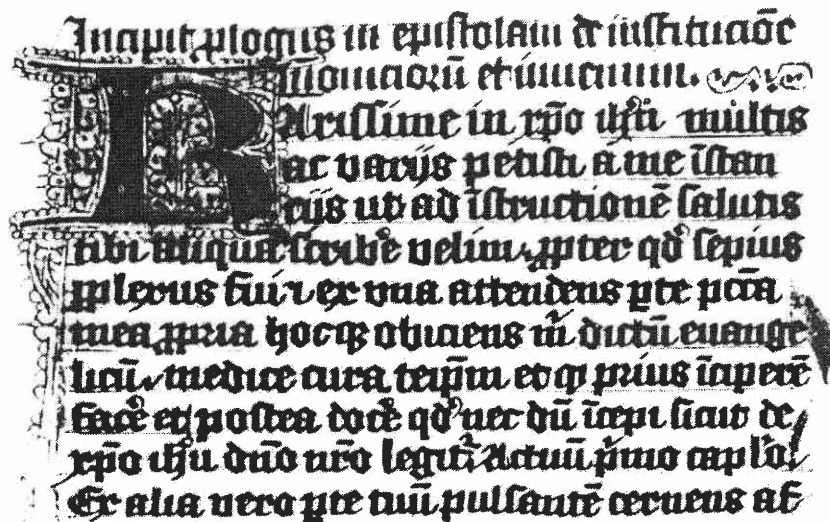 Incipit ꝓlogus in epistolam de institucioē
nouiciorū et iuuenum.
Karissime in xp̄o ih̄u multis
ac varijs petisti a me īstan
cijs ut ad īstructionē salutis
tibi aliqua scribe᷑ velim ꝓpter qd̓ sepius
ꝑplexus fui ⁊ ex vna attendens ꝑte pcc̄a
mea ꝓpria hocqꝫ obiciens m̄ dictū euange
licū medice cura teip̄m et qꝫ prius īciperē
face᷑ et postea doce᷑ qd̓ nec dū īcepi sicut de
xp̄o ih̄u dn̄o nr̄o legit᷑ Actuū p̄mo caplo.
Ex alia vero ꝑte tuū pulsantē cernens af